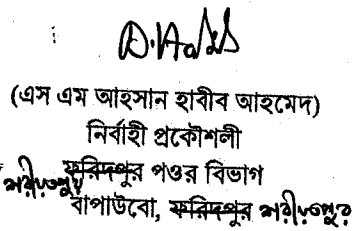 (এস এম আহসান হাবীব আহমেদ)
নির্বাহী প্রকৌশলী
শরীয়তপুর ফরিদপুর পওর বিভাগ
বাপাউবো, ফরিদপুর শরীয়তপুর